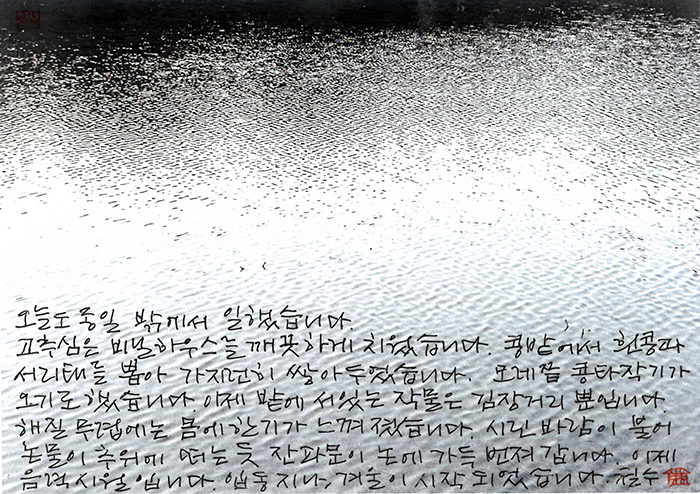 오늘도 종일 밖에서 일했습니다.
고추심은 비닐하우스를 깨끗하게 치웠습니다. 콩밭에서 흰콩과
서리태를 뽑아 가지런히 쌓아두었습니다. 모레쯤 콩타작기가
오기로 했습니다 이제 밭에 서있는 작물은 김장거리 뿐입니다.
해질 무렵에는 몸에 한기가 느껴졌습니다. 시린 바람이 불어
논물이 추위에 떠는 듯 잔파문이 논에 가득 번져 갑니다. 이제
음력 시월입니다. 입동 지나, 겨울이 시작 되었습니다. 철수